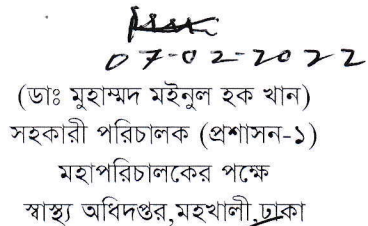 07-02-2022
(ডাঃ মুহাম্মদ মইনুল হক খান)
সহকারী পরিচালক (প্রশাসন-১)
মহাপরিচালকের পক্ষে
স্বাস্থ্য অধিদপ্তর,মহখালী,ঢাকা